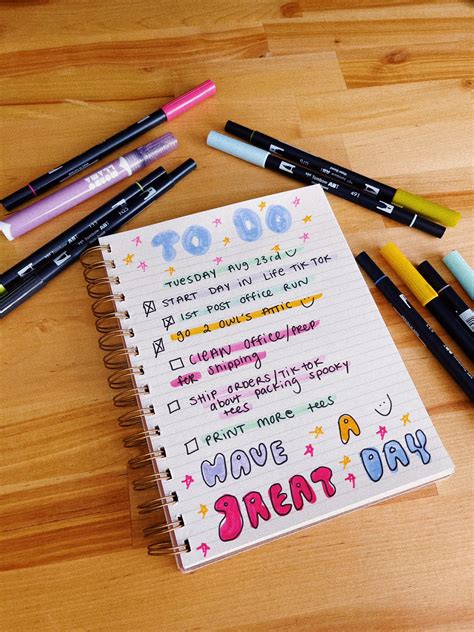 TO DO
TUESDAY Aug 23rd
START DAY IN LIFE TIKTOK
1ST POST OFFICE RUN
go 2 OWL'S ATTIC
CLEAN OFFICE/PREP
for SHIPPING
SHIP ORDERS/TIKTOK
about packing spooky
tees
PRINT MORE TEES
HAVE A
GREAT DAY